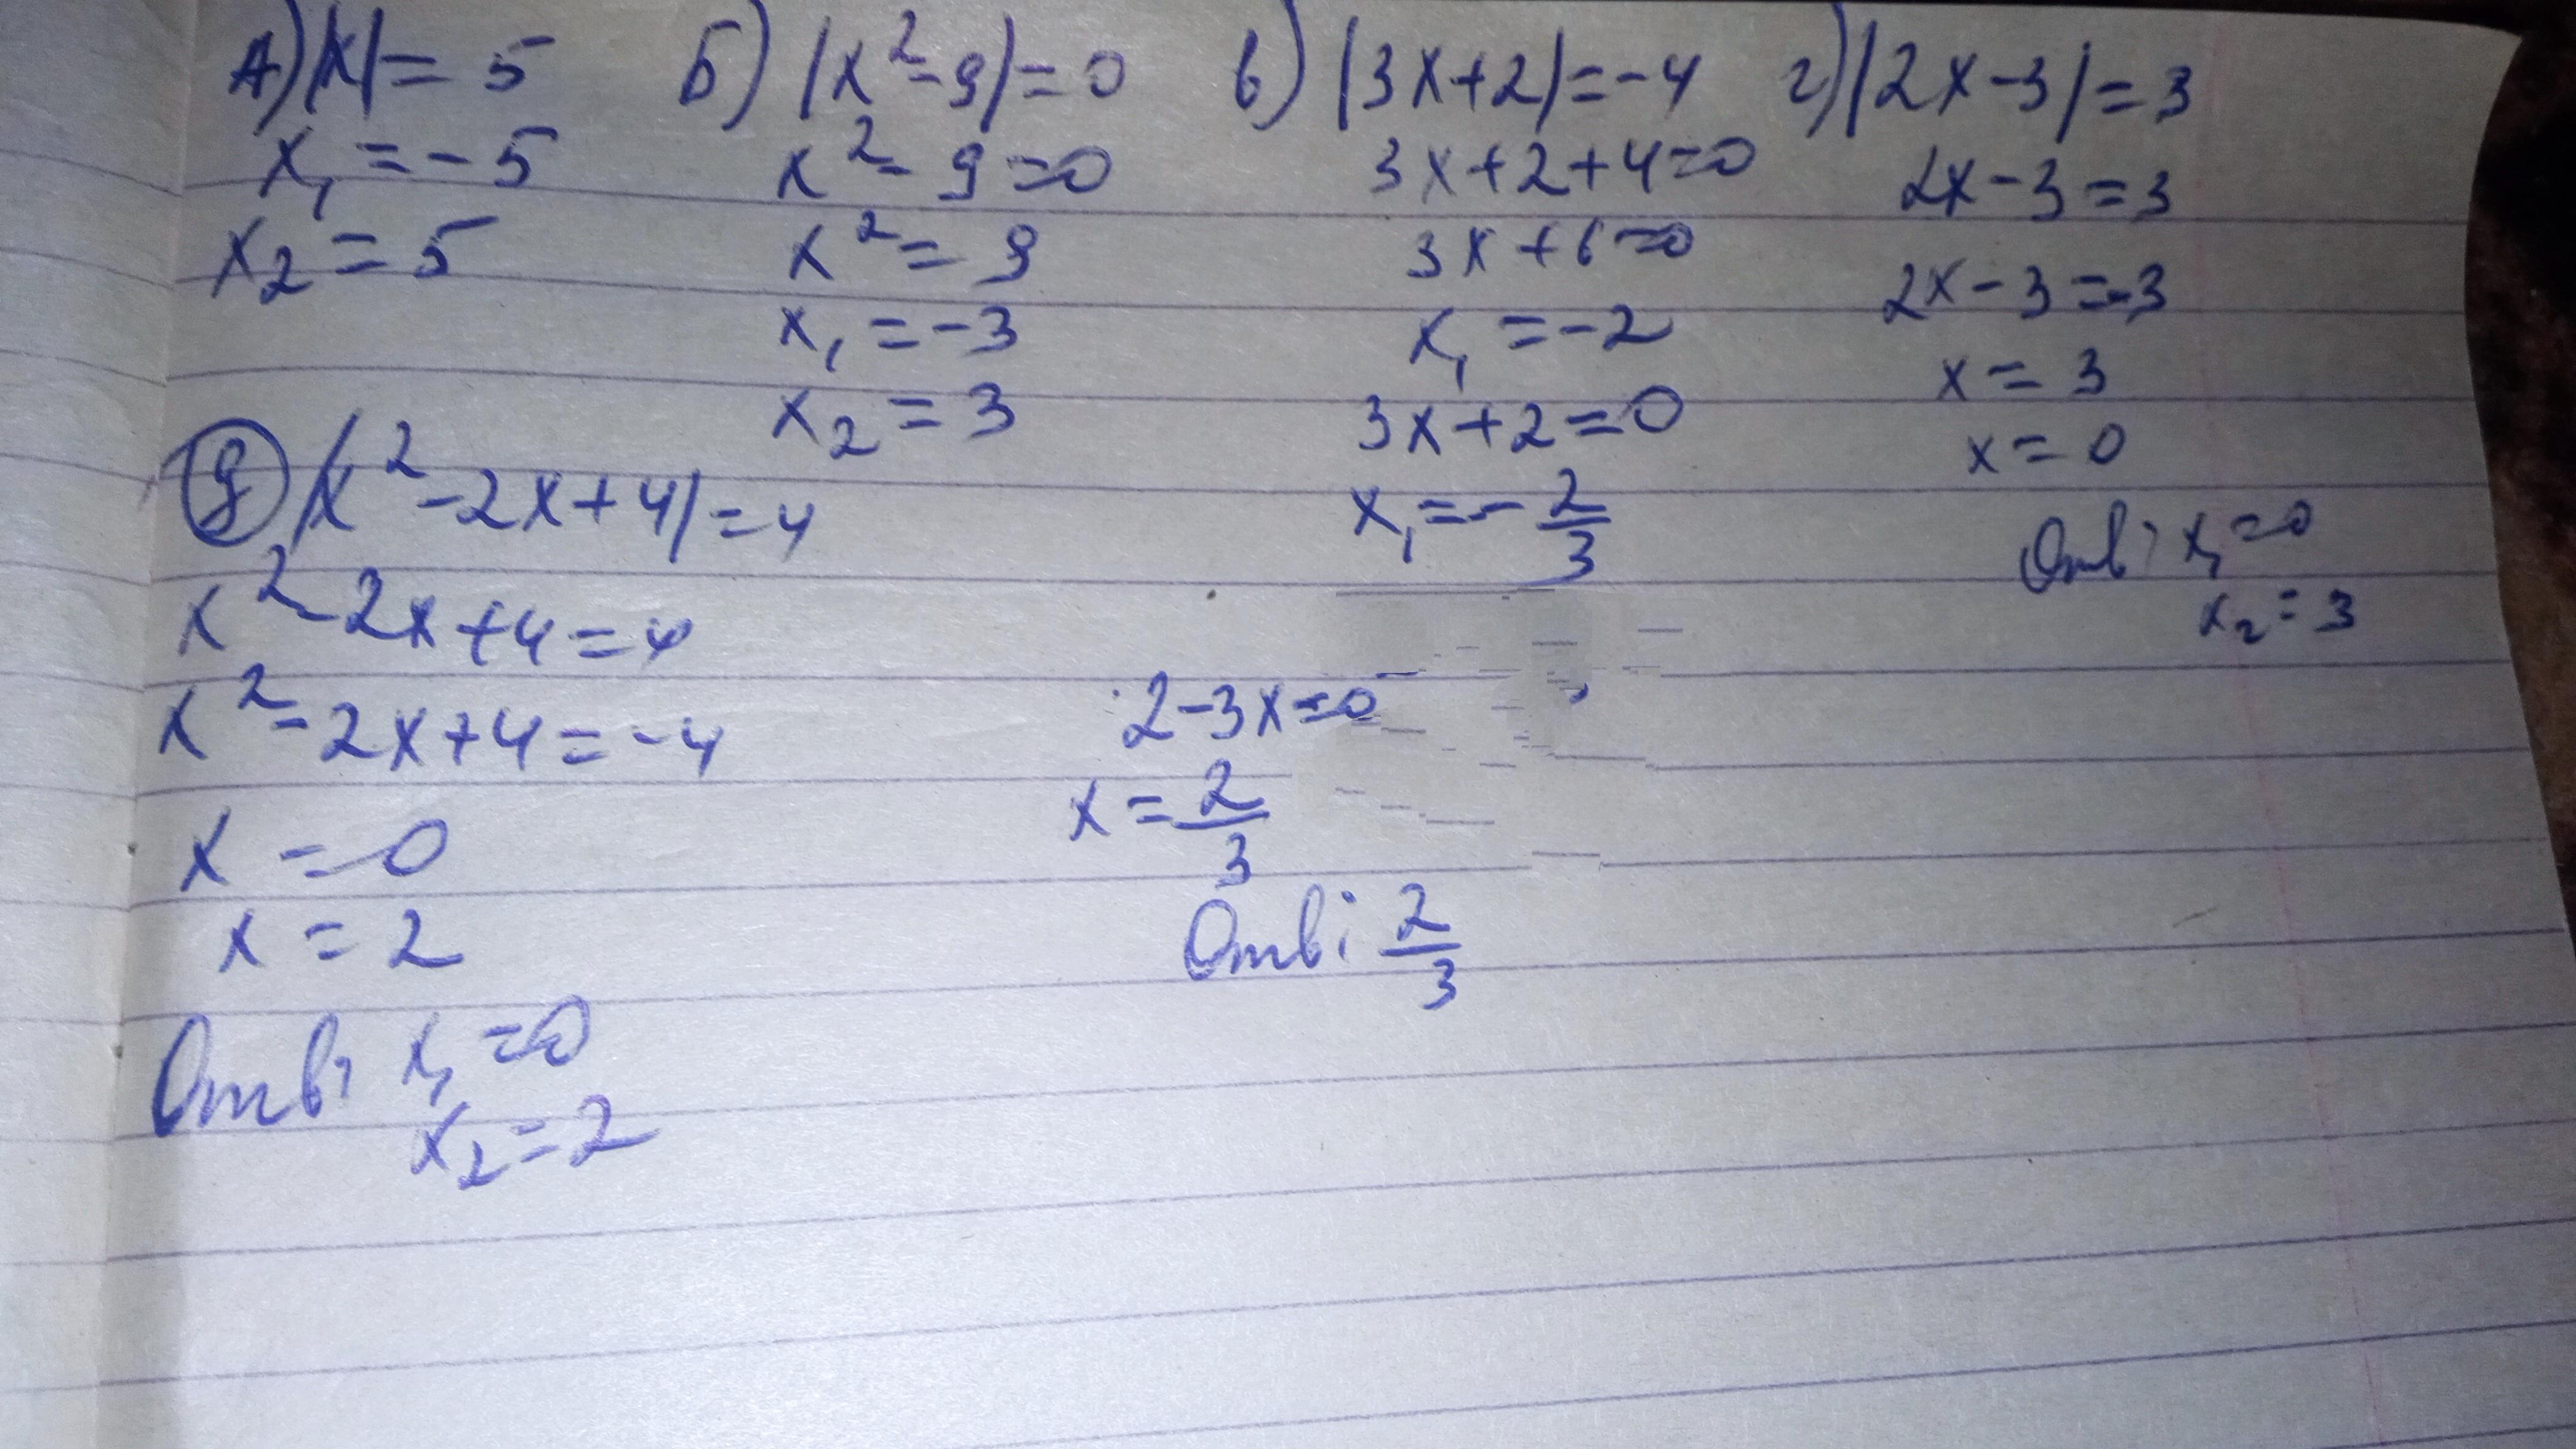 А) |x| = 5
x₁ = -5
x₂ = 5
Б) |x² - 9| = 0
x² - 9 = 0
x² = 9
x₁ = -3
x₂ = 3
в) |3x+2| = -4
3x+2+4=0
3x+6=0
x₁ = -2
3x+2=0
x₁ = -2/3
г) |2x-3| = 3
2x-3=3
2x-3=-3
x = 3
x = 0
Отв: x₁ = 0
x₂ = 3
д |x² - 2x + 4| = 4
x² - 2x + 4 = 4
x² - 2x + 4 = -4
x = 0
x = 2
Отв: x₁ = 0
x₂ = 2
2-3x=0
x = 2/3
Отв: 2/3